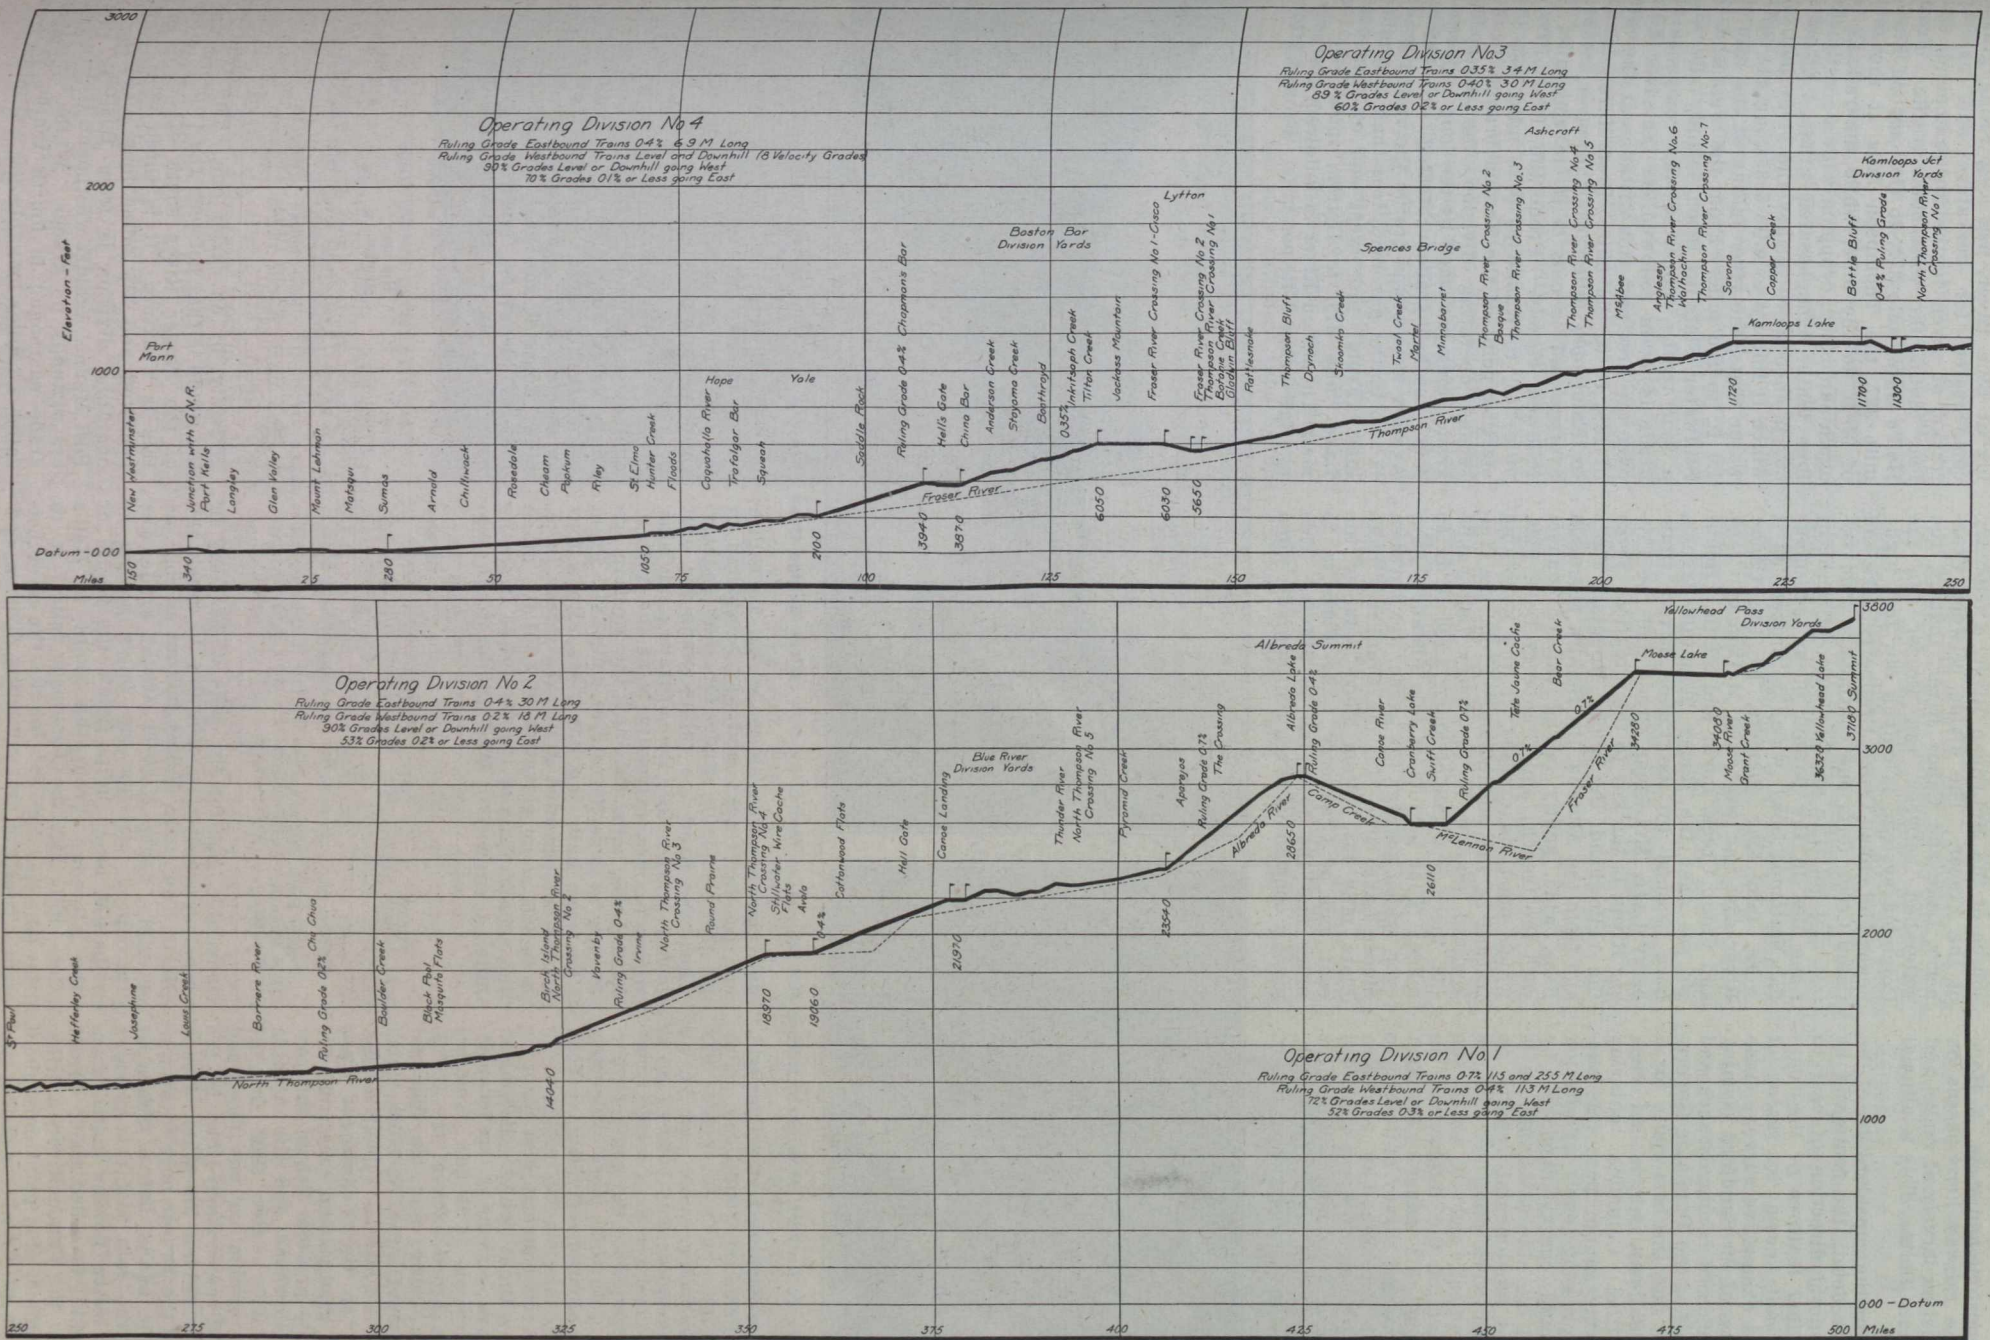 3000
2000
1000
Elevation - Feet
Datum - 0.00
Miles
Operating Division No 4
Ruling Grade Eastbound Trains 0.4% 6.9 M Long
Ruling Grade Westbound Trains Level and Downhill (8 Velocity Grades)
90% Grades Level or Downhill going West
70% Grades 0.1% or Less going East
Operating Division No 3
Ruling Grade Eastbound Trains 0.35% 3.4 M Long
Ruling Grade Westbound Trains 0.40% 3.0 M Long
89% Grades Level or Downhill going West
60% Grades 0.2% or Less going East
Port
Mann
New Westminster
Junction with G.N.R.
Port Kells
Langley
Glen Valley
Mount Lehman
Matsqui
Sumas
Arnold
Chilliwack
Rosedale
Cheam
Popkum
Riley
St Elmo
Hunter Creek
Floods
Hope
Coquahalla River
Trafalgar Bar
Squeah
Yale
Saddle Rock
Ruling Grade 0.4% Chapman's Bar
Hell's Gate
China Bar
Anderson Creek
Stoyoma Creek
Boothroyd
Boston Bar
Division Yards
0.35%
Inkitsaph Creek
Tilton Creek
Jackass Mountain
Fraser River Crossing No 1 - Cisco
Lytton
Fraser River Crossing No 2
Thompson River Crossing No 1
Botanie Creek
Gladwin Bluff
Rattlesnake
Thompson Bluff
Drynoch
Skoomka Creek
Spences Bridge
Twaal Creek
Martel
Minnabarriet
Thompson River Crossing No 2
Basque
Thompson River Crossing No. 3
Ashcroft
Thompson River Crossing No 4
Thompson River Crossing No 5
McAbee
Anglesey
Thompson River Crossing No. 6
Walhachin
Thompson River Crossing No. 7
Savona
Copper Creek
Kamloops Lake
Battle Bluff
0.4% Ruling Grade
Kamloops Jct
Division Yards
North Thompson River
Crossing No 1
Fraser River
Thompson River
15.0
34.0
28.0
105.0
210.0
394.0
387.0
605.0
603.0
565.0
1172.0
1170.0
1130.0
25
50
75
100
125
150
175
200
225
250
Operating Division No 2
Ruling Grade Eastbound Trains 0.4% 30 M Long
Ruling Grade Westbound Trains 0.2% 1.8 M Long
90% Grades Level or Downhill going West
53% Grades 0.2% or Less going East
St Paul
Hefferley Creek
Josephine
Louis Creek
Barriere River
Ruling Grade 0.2% Chu Chua
Boulder Creek
Black Pool
Mosquito Flats
Birch Island
North Thompson River
Crossing No 2
Vavenby
Ruling Grade 0.4%
Irvine
North Thompson River
Crossing No 3
Round Prairie
North Thompson River
Crossing No 4
Stillwater Wire Cache
Flats
Avola
0.4%
Cottonwood Flats
Hell Gate
Canoe Landing
Blue River
Division Yards
Thunder River
North Thompson River
Crossing No 5
Pyramid Creek
Aparejos
Ruling Grade 0.7%
The Crossing
Albreda Summit
Albreda Lake
Ruling Grade 0.4%
Canoe River
Cranberry Lake
Swift Creek
Ruling Grade 0.7%
Tete Jaune Cache
Bear Creek
0.7%
0.7%
Moose Lake
Yellowhead Pass
Division Yards
Moose River
Grant Creek
3632.0 Yellowhead Lake
3718.0 Summit
North Thompson River
Albreda River
Camp Creek
McLennan River
Fraser River
1404.0
1897.0
1906.0
2197.0
2354.0
2865.0
2611.0
3428.0
3408.0
Operating Division No. 1
Ruling Grade Eastbound Trains 0.7% 11.5 and 25.5 M Long
Ruling Grade Westbound Trains 0.4% 11.3 M Long
72% Grades Level or Downhill going West
52% Grades 0.3% or Less going East
3800
3000
2000
1000
0.00 - Datum
250
275
300
325
350
375
400
425
450
475
500 Miles